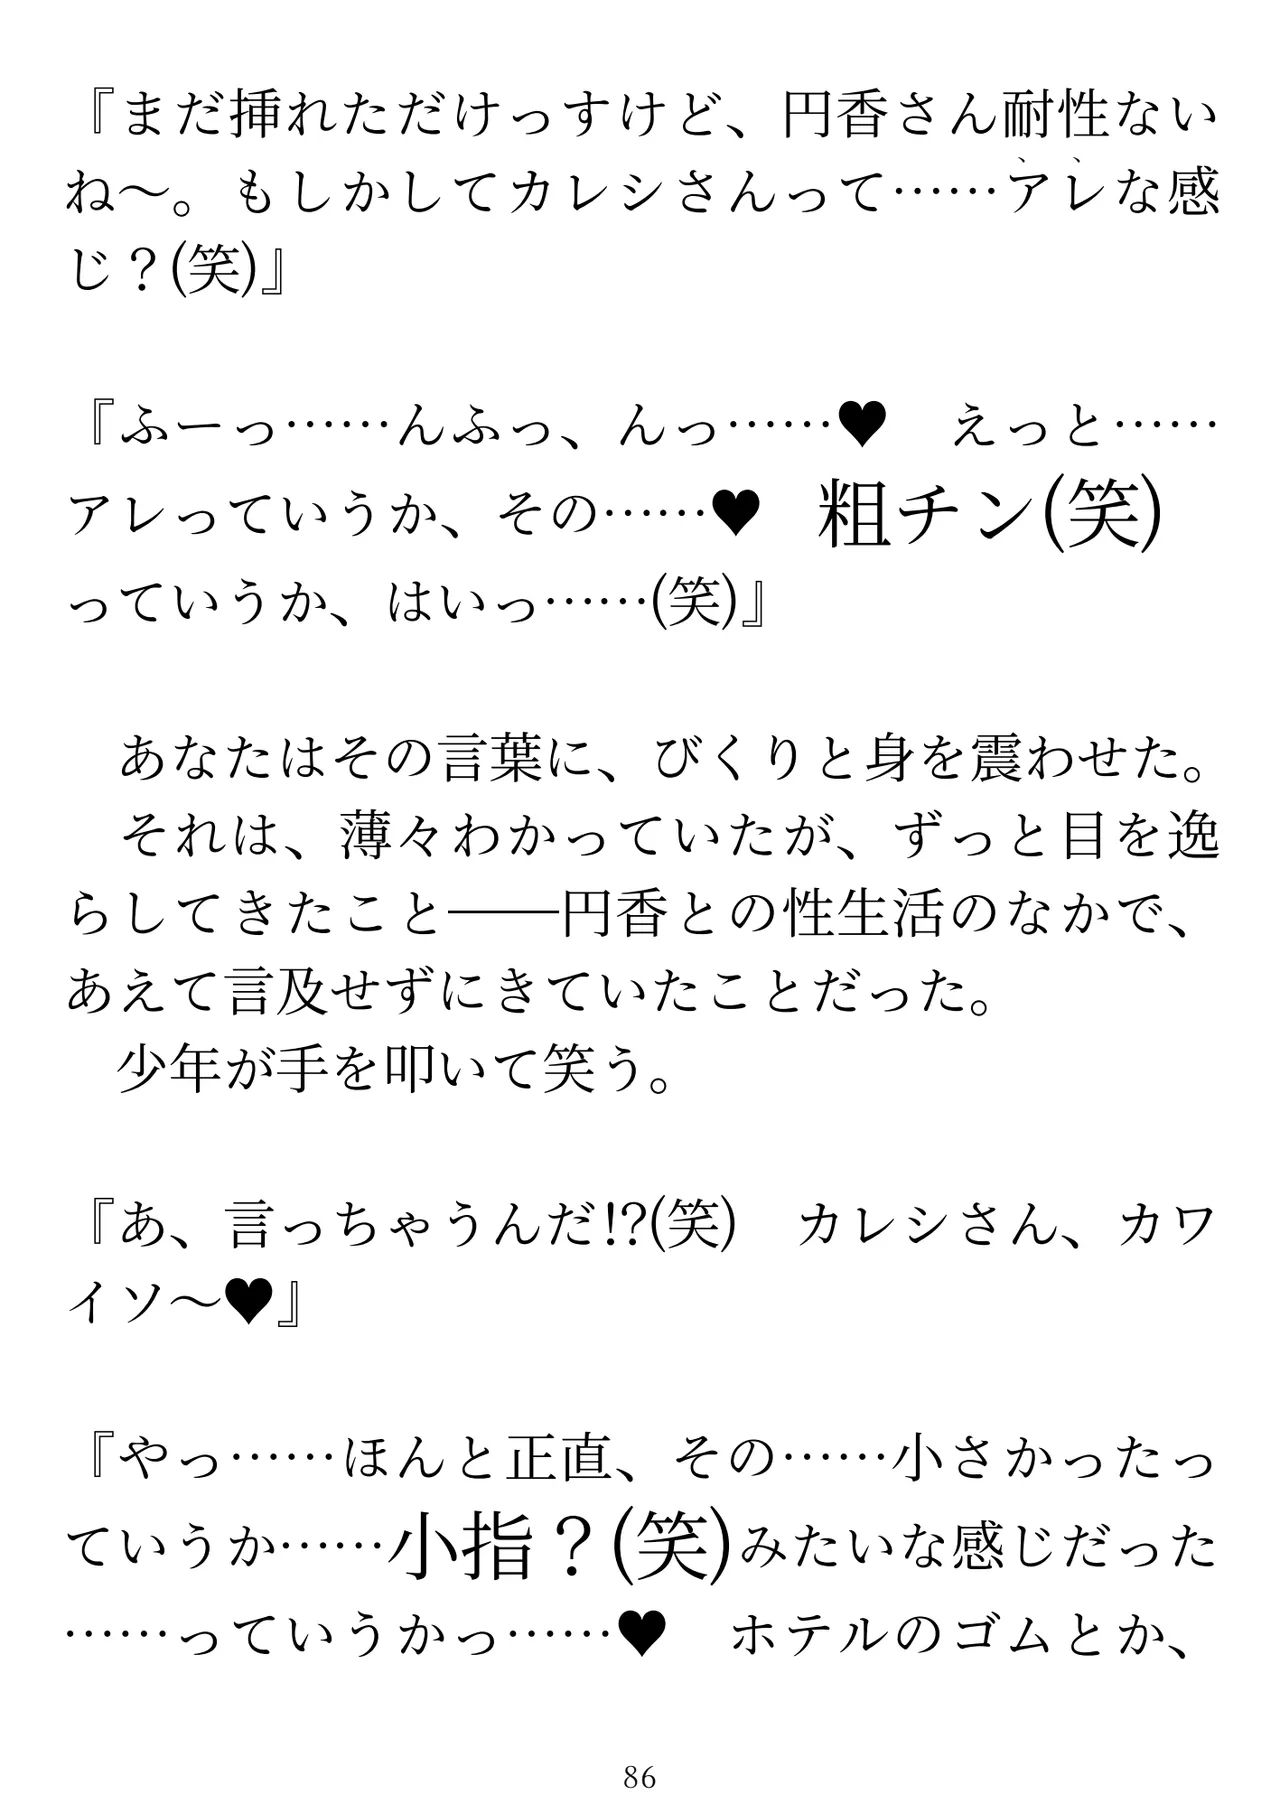 『まだ挿れただけっすけど、円香さん耐性ない
ね～。もしかしてカレシさんって……アレな感
じ？(笑)』
『ふーっ……んふっ、んっ……♥　えっと……
アレっていうか、その……♥　粗チン(笑)
っていうか、はいっ……(笑)』
　あなたはその言葉に、びくりと身を震わせた。
　それは、薄々わかっていたが、ずっと目を逸
らしてきたこと――円香との性生活のなかで、
あえて言及せずにきていたことだった。
　少年が手を叩いて笑う。
『あ、言っちゃうんだ!?(笑)　カレシさん、カワ
イソ～♥』
『やっ……ほんと正直、その……小さかったっ
ていうか……小指？(笑)みたいな感じだった
……っていうかっ……♥　ホテルのゴムとか、
86